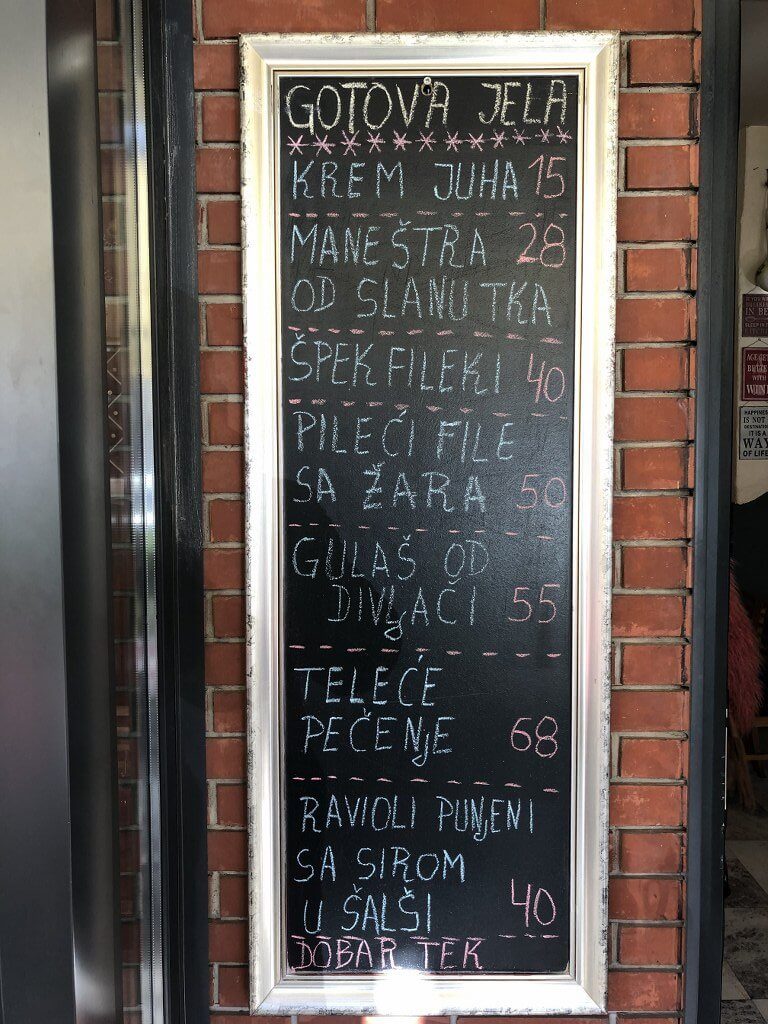 GOTOVA JELA
KREM JUHA 15
MANEŠTRA 28
OD SLANUTKA
ŠPEK FILEKI 40
PILEĆI FILE
SA ŽARA 50
GULAŠ OD
DIVjAČI 55
TELEĆE
PEČENjE 68
RAVIOLI PUNjENI
SA SIROM
U ŠALŠI 40
DOBAR TEK
IN BE
AGE GET
BETTER
WITH
WINE
HAPPINESS
IS NOT
IT IS A
WAY
OF LIFE